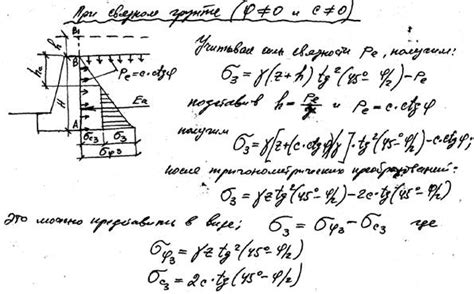 При связном грунте (φ≠0 и c≠0)
B₁
h
B
hc
Pe = c·ctgφ
H
Ea
A
σc₃
σ₃
σφ₃
Учитывая силы связности Pe, получим:
σ₃ = γ(z+h) tg²(45°-φ/2) - Pe
подставив h = Pe/γ и Pe = c·ctgφ
получим
σ₃ = γ[z+(c·ctgφ)/γ]·tg²(45°-φ/2) - c·ctgφ;
после тригонометрических преобразований:
σ₃ = γz tg²(45°-φ/2) - 2c·tg(45°-φ/2)
Это можно представить в виде; σ₃ = σφ₃ - σc₃ где
σφ₃ = γz tg²(45°-φ/2)
σc₃ = 2c·tg(45°-φ/2)